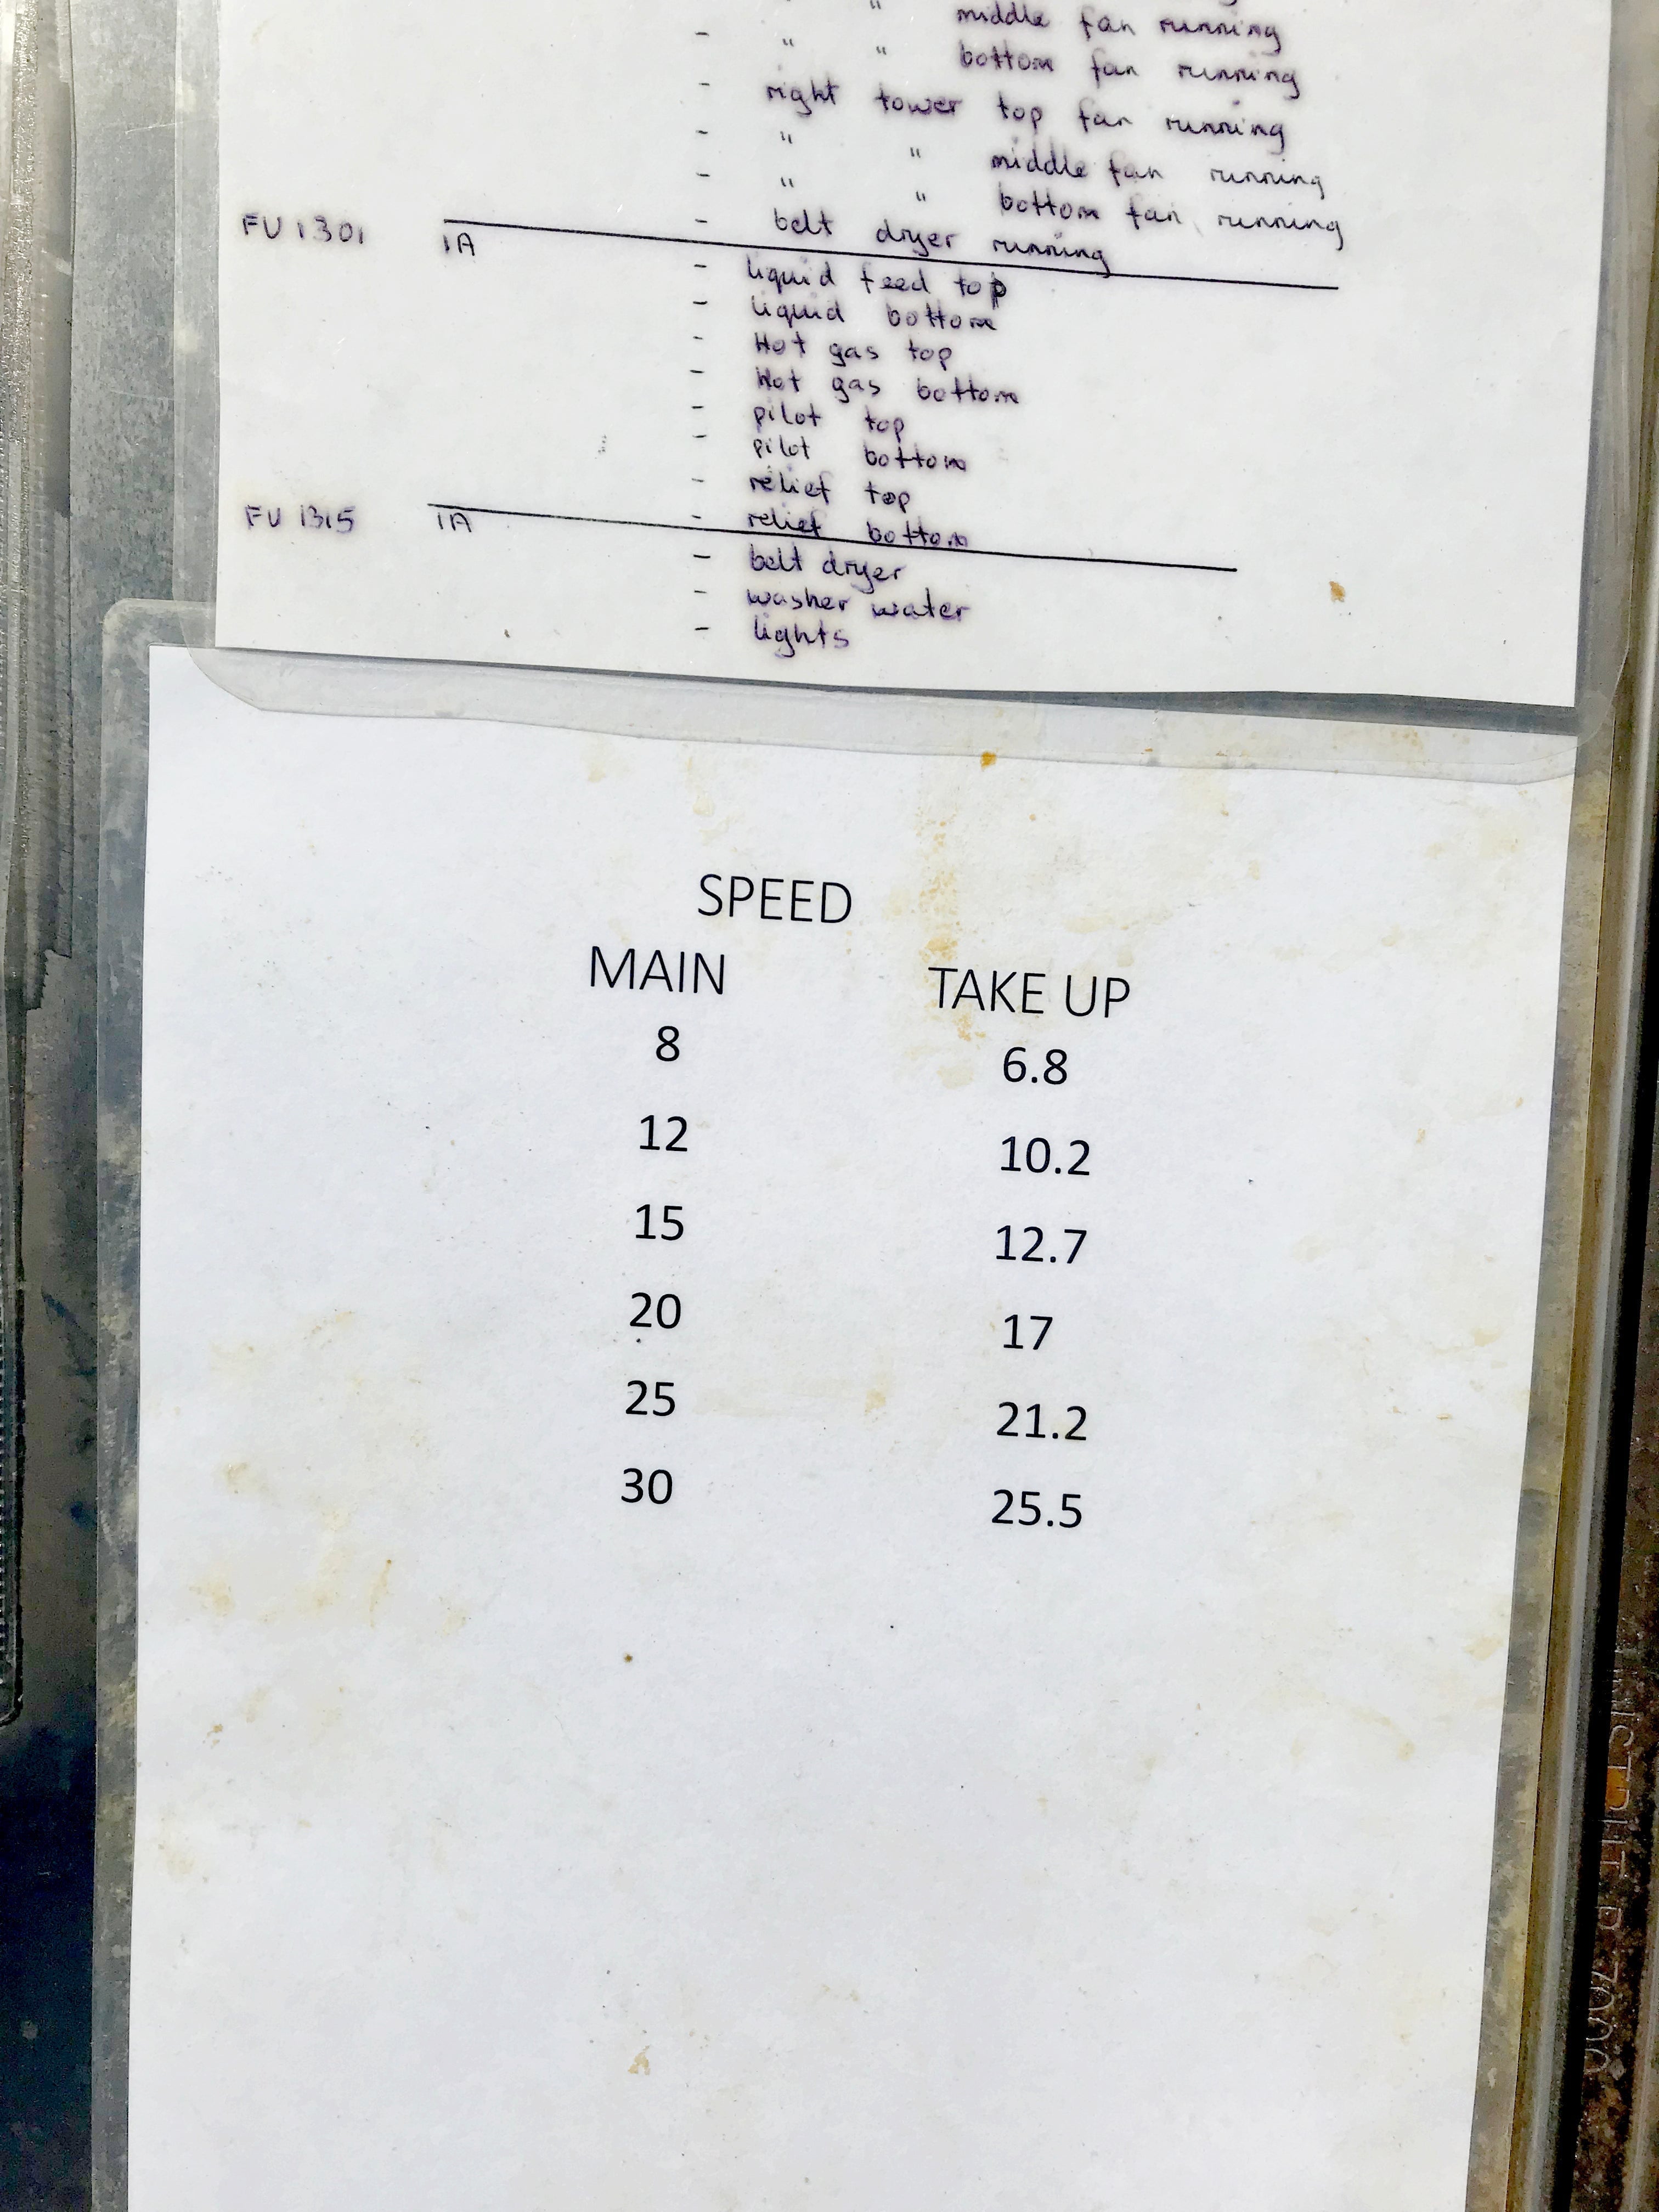 " middle fan running
- " " bottom fan running
- right tower top fan running
- " " middle fan running
- " " bottom fan running
- belt dryer running
FU 1301 1A - liquid feed top
- liquid bottom
- Hot gas top
- Hot gas bottom
- pilot top
- pilot bottom
- relief top
- relief bottom
FU 1315 1A - belt dryer
- washer water
- lights
SPEED
MAIN TAKE UP
8 6.8
12 10.2
15 12.7
20 17
25 21.2
30 25.5